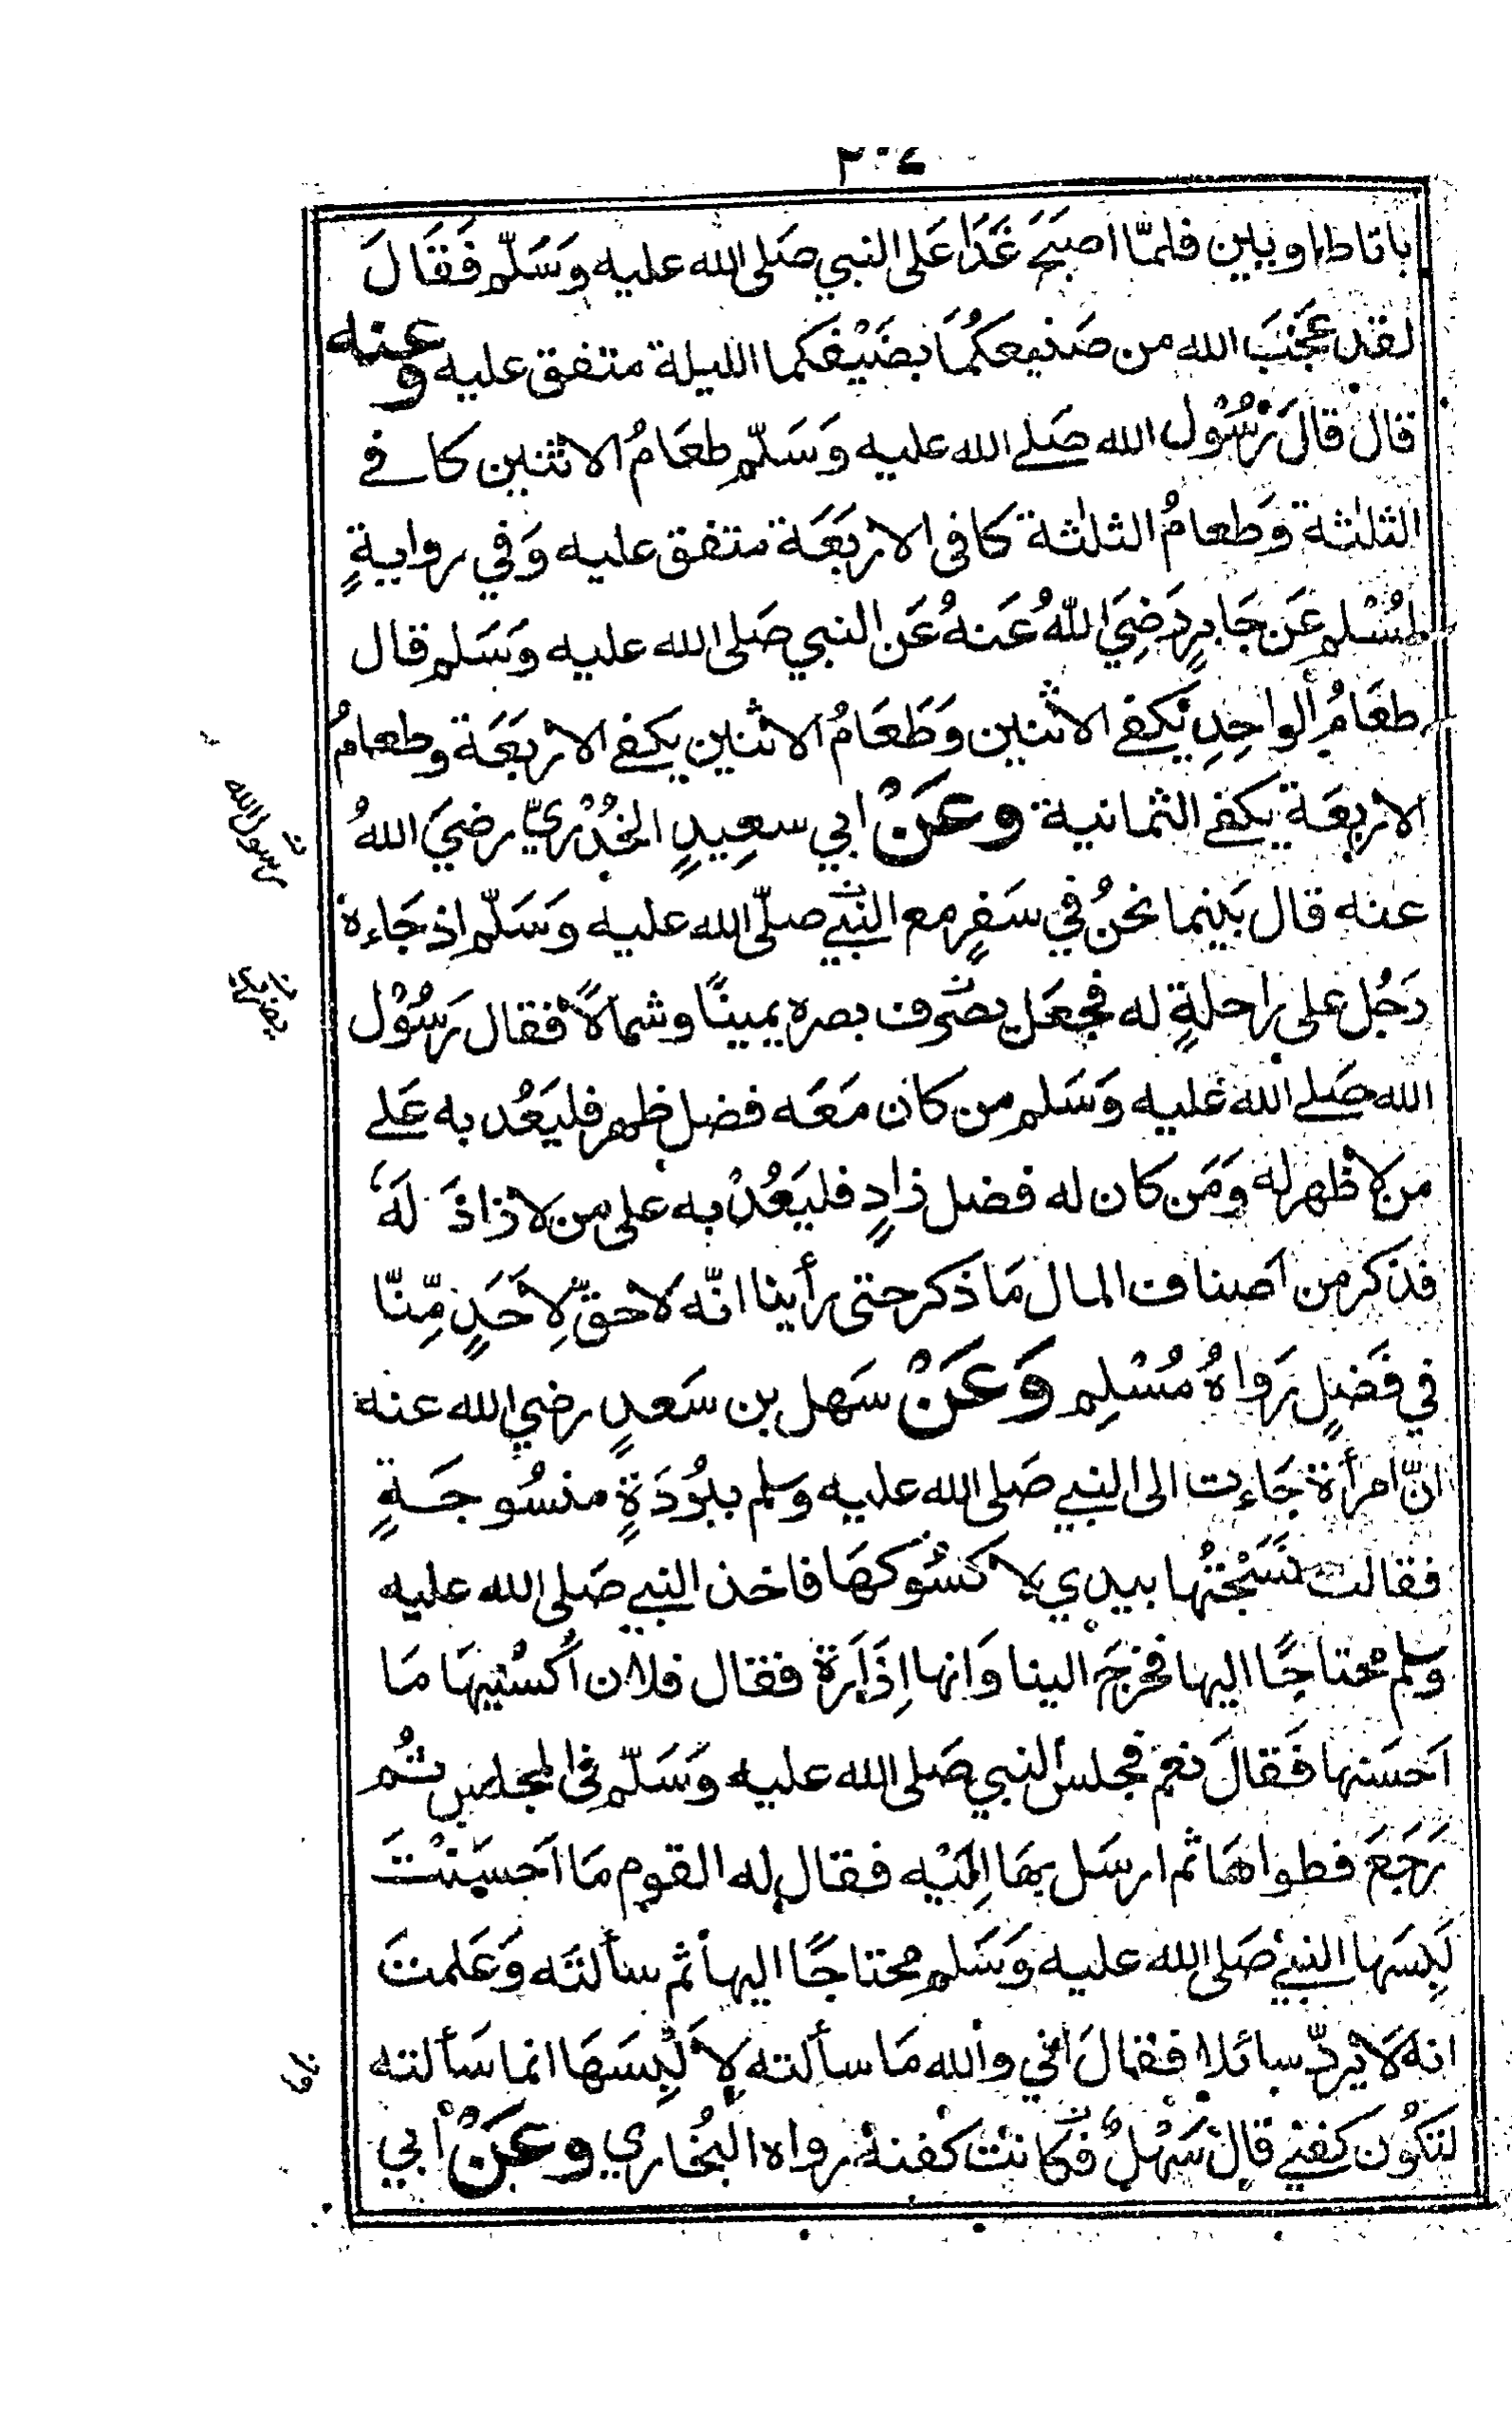 ٣٠٤
باتا طاويين فلمّا اصبَحَ غَدَا عَلى النبي صَلى الله عليه وَسَلّم فَقَالَ
لقد عَجَبَ الله من صَنيعكمُا بضَيْفكما الليلة متفق عليه وعنه
قال قالَ رَسُوْل الله صَلے الله عليه وَسَلّم طعَامُ الاثنين كافے
الثلٰثة وَطعامُ الثلٰثة كافى الاربَعَة متفق عليه وَفي روايةٍ
لمُسْلم عَن جَابرٍ رَضِيَ اللّٰهُ عَنهُ عَن النبي صَلى الله عليه وَسَلم قال
طعَامُ الواحِدِ يَكفے الاثنين وَطَعَامُ الاثنين يكفے الاربَعَة وطعامُ
الاربعَة يكفے الثمانية وعَنْ ابي سعِيدٍ الخُدْرِيّ رضيَ اللهُ
عنه قال بَينما نحنُ في سَفرٍ مع النبےّ صلّى الله عليه وَسَلّم اذ جَاءه
رَجُل على راحلةٍ له فجعَل يصَرف بصره يمينًا وشمالًا فقال رَسُوْل
الله صَلے الله عليه وَسَلم من كان مَعَه فضل ظهر فليَعُد به عَلے
من لا ظهر له وَمَن كان له فضل زادٍ فليَعُدْ به على من لا زادَ لَهُ
فذكر من اَصناف المال مَا ذكر حتى رأينا انّه لاحقّ لِاَحَدٍ مِّنّا
في فَضلٍ رَواهُ مُسْلِم وَعَنْ سَهل بن سَعدٍ رضي الله عنه
انّ امرأة جَاءت الى النبے صَلى الله عليه وسلم ببُردَةٍ منسُوجَةٍ
فقالت نسَجْتُها بيدي لا كسُوكهَا فاخذ النبے صَلى الله عليه
وسلم محتاجًا اليها فخرجَ الينا وَانها اِزَارَة فقال فلان اُكسُنيهَا مَا
اَحسَنها فَقالَ نعم فجلس النبي صَلى الله عليه وَسَلّم فى المجلس ثُم
رَجَعَ فطواهَا ثم ارسَل بهَا اِلَيْه فقال له القوم مَا اَحسَنْتَ
لَبِسَها النبےُ صَلى الله عليه وَسَلم محتاجًا اليها ثم سألتَه وَعَلمتَ
انه لَا يَردّ سائلا فقالَ اني والله مَا سألته لِاَلْبِسَهَا انما سَألته
لتكُون كفنے قال سَهْلٌ فكانت كفنه رواه البُخاري وعَنْ اَبي
رسول الله